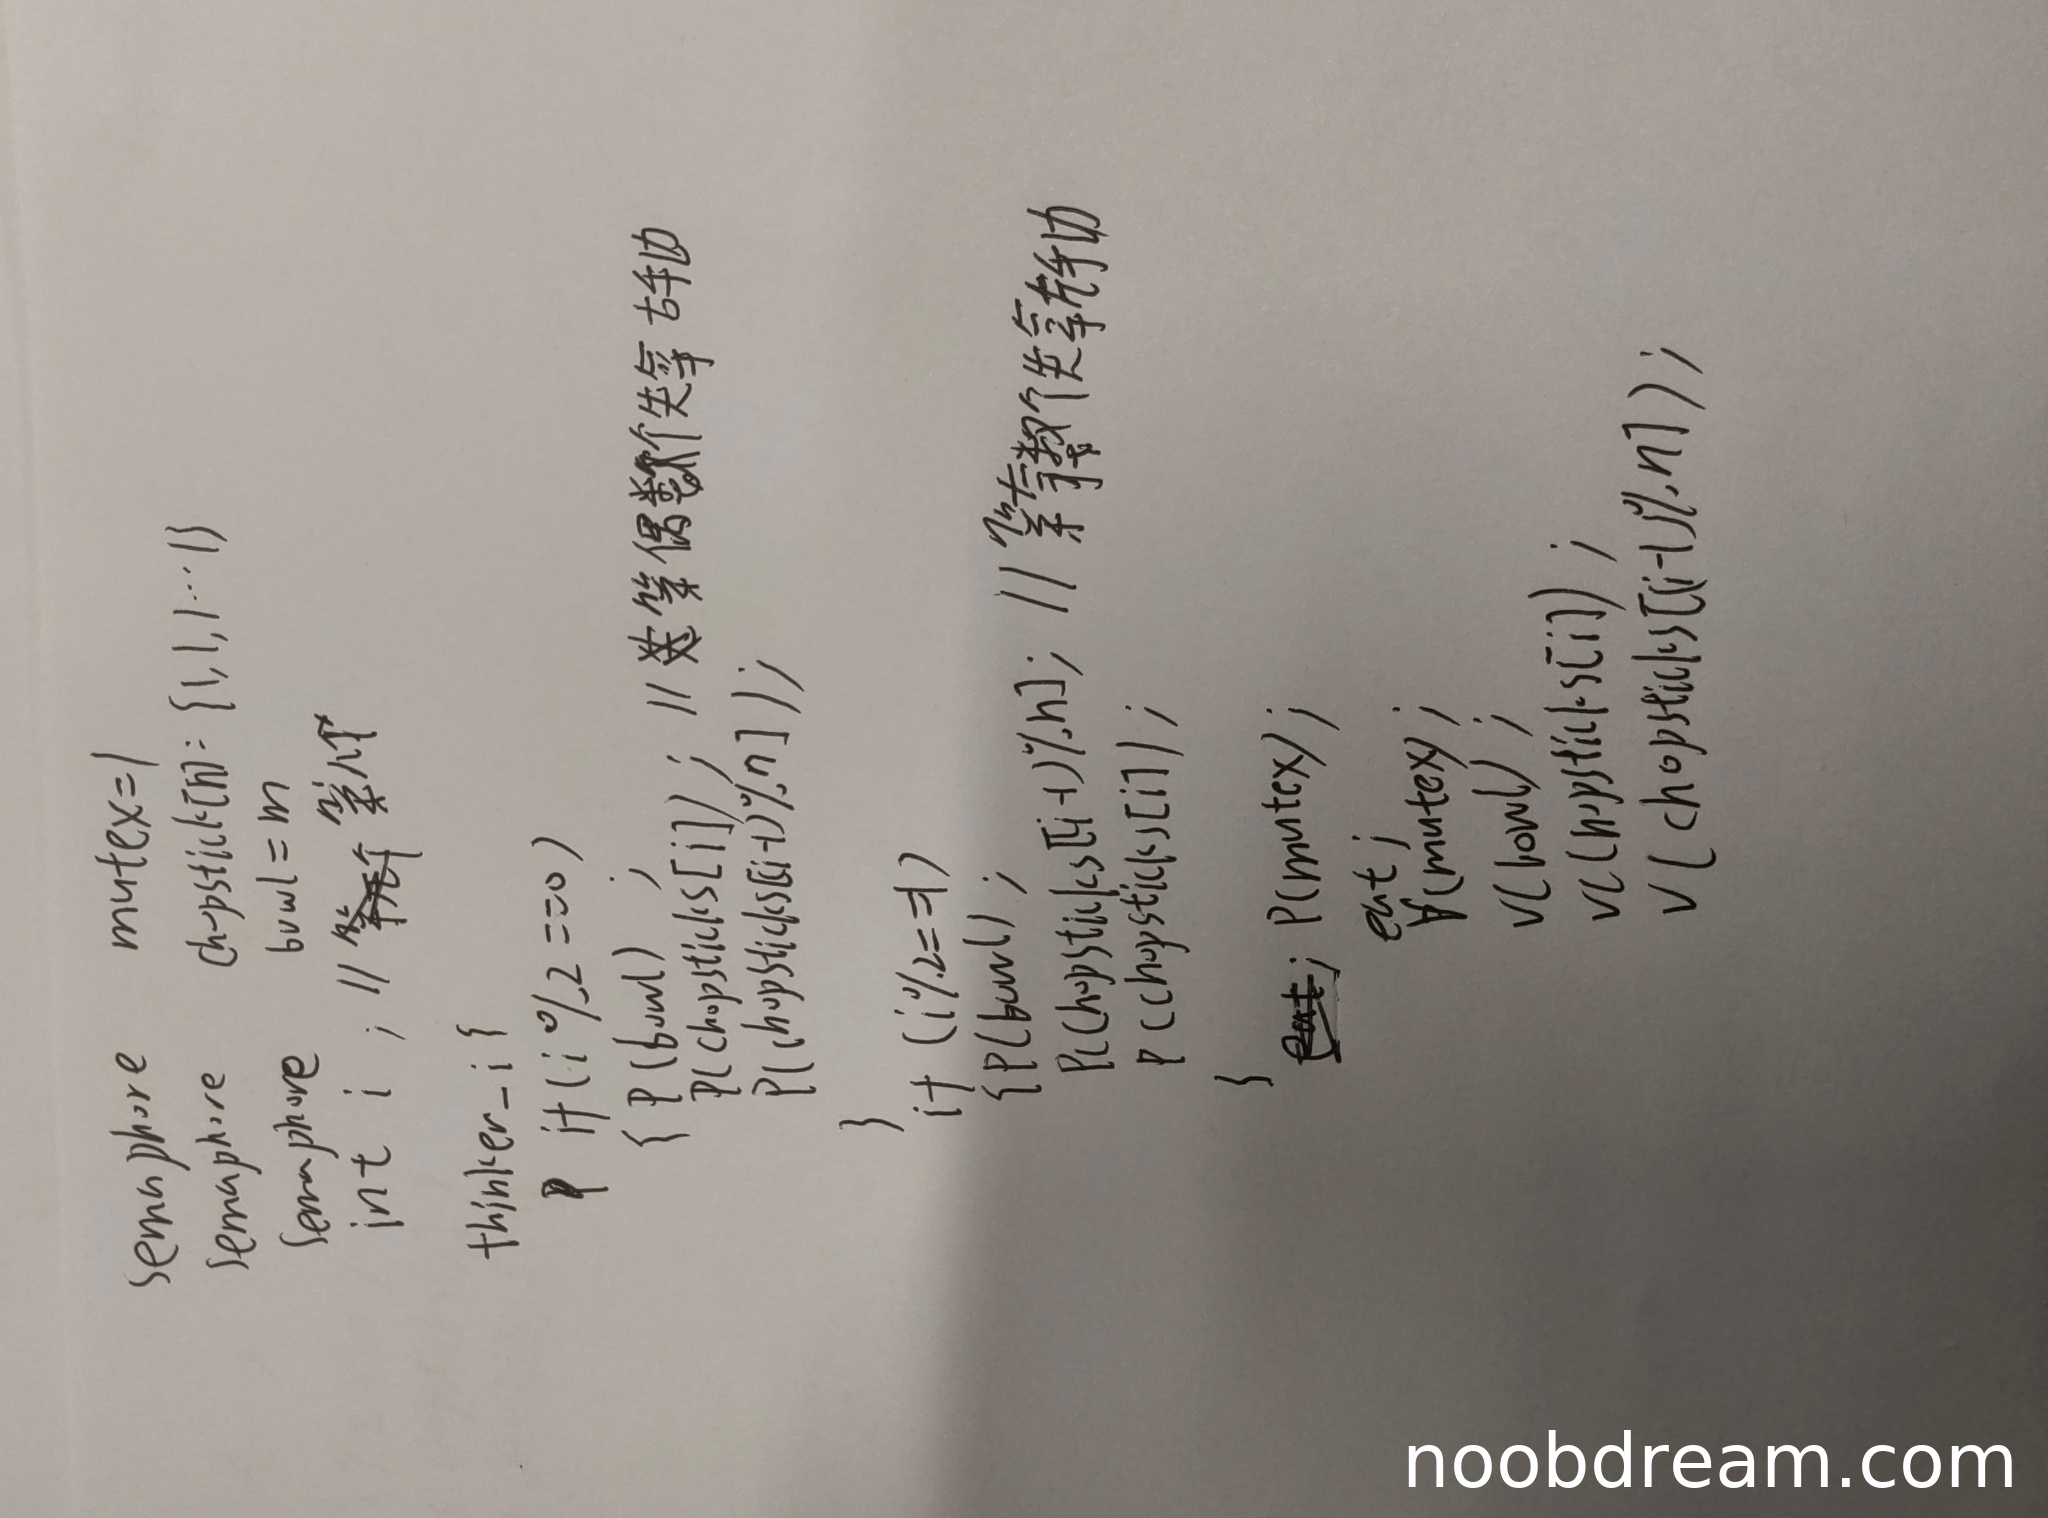 semaphore mutex=1
semaphore chopstick[n]={1,1,1…1}
semaphore bowl=m
int i ; // 第几个
thinker_i{
if(i%2==0)
{P(bowl);
P(chopsticks[i]); // 第偶数个先拿右手边
P(chopsticks[(i+1)%n]);
}
if(i%2==1)
{P(bowl);
P(chopsticks[(i+1)%n]; // 第奇数个先拿左手边
P(chopsticks[i]);
}
P(mutex);
eat;
V(mutex);
V(bowl);
V(chopsticks[i]);
V(chopsticks[(i-1)%n]);
noobdream.com